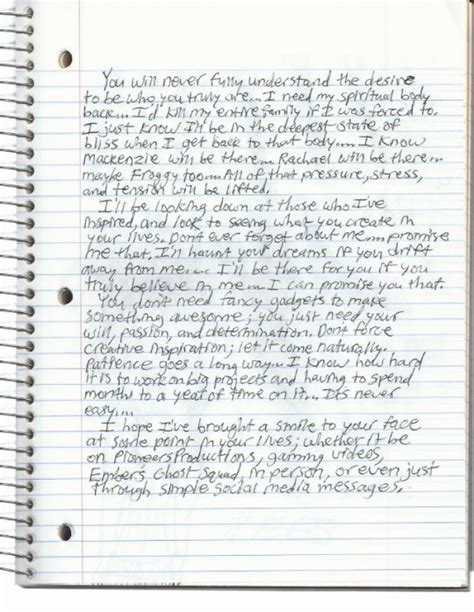 You will never fully understand the desire
to be who you truly are... I need my spiritual body
back... I'd kill my entire family if I was forced to.
I just know I'll be in the deepest state of
bliss when I get back to that body.... I know
Mackenzie will be there... Rachael will be there...
maybe Froggy too... All of that pressure, stress,
and tension will be lifted.
I'll be looking down at those who I've
inspired, and look to seeing what you create in
your lives. Don't ever forget about me... promise
me that. I'll haunt your dreams if you drift
away from me.... I'll be there for you if you
truly believe in me... I can promise you that.
You don't need fancy gadgets to make
something awesome; you just need your
will, passion, and determination. Don't force
creative inspiration; let it come naturally.
Patience goes a long way... I know how hard
it is to work on big projects and having to spend
months to a year of time on it... It's never
easy....
I hope I've brought a smile to your face
at some point in your lives; whether it be
on PioneersProductions, gaming videos,
Ember's Ghost Squad, in person, or even just
through simple social media messages.